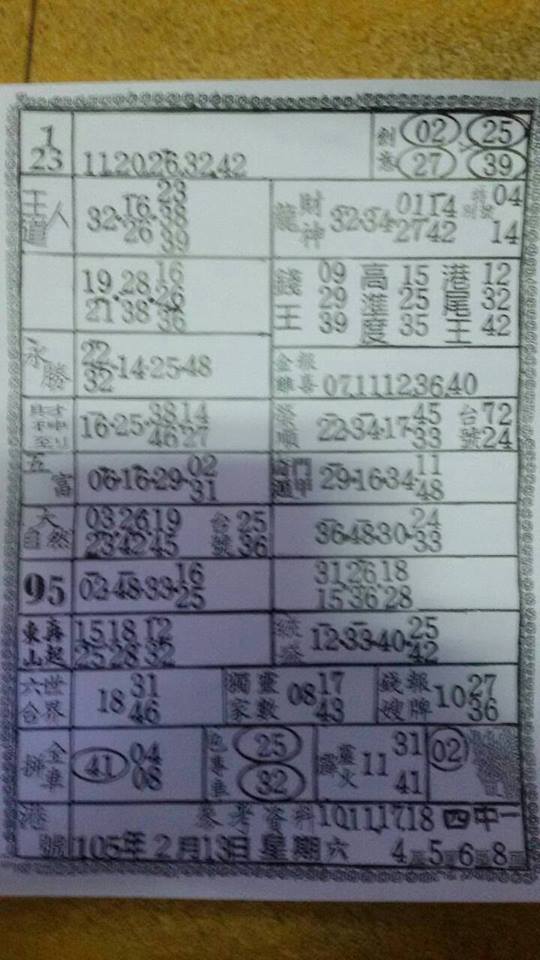 1
23
11.20.26.32.42
創意
02 25
27 39
王道人
32·16·23
26·38
39
龍 財神
32·34·01.14
27.42
04
14
19·28·16
21·38·26
36
錢王
09
29
39
高進度
15
25
35
港尾王
12
32
42
永勝
22
32·14·25·48
金雞報喜
07.11.12.36.40
16·25·38.14
46.27
順
22·34·17·45
33
台號
72
24
五富
06·16·29·02
31
奇門遁甲
29·16·34·11
48
大自然
03.26.19
23.42.45
台號
25
36
36·48·30·24
33
95
02·48·33·16
25
31.26.18
15.36.28
東山再起
15.18.12
25.28.32
12·33·40·25
42
六合世界
18 31
46
獨家靈數
08 17
43
錢嫂報牌
10 27
36
拼全車
41
04
08
包專車
25
32
霹靂火
11 31
41
02
港號
參考資料 10.11.17.18 四中一
105年2月13日 星期六
4 5 6 8